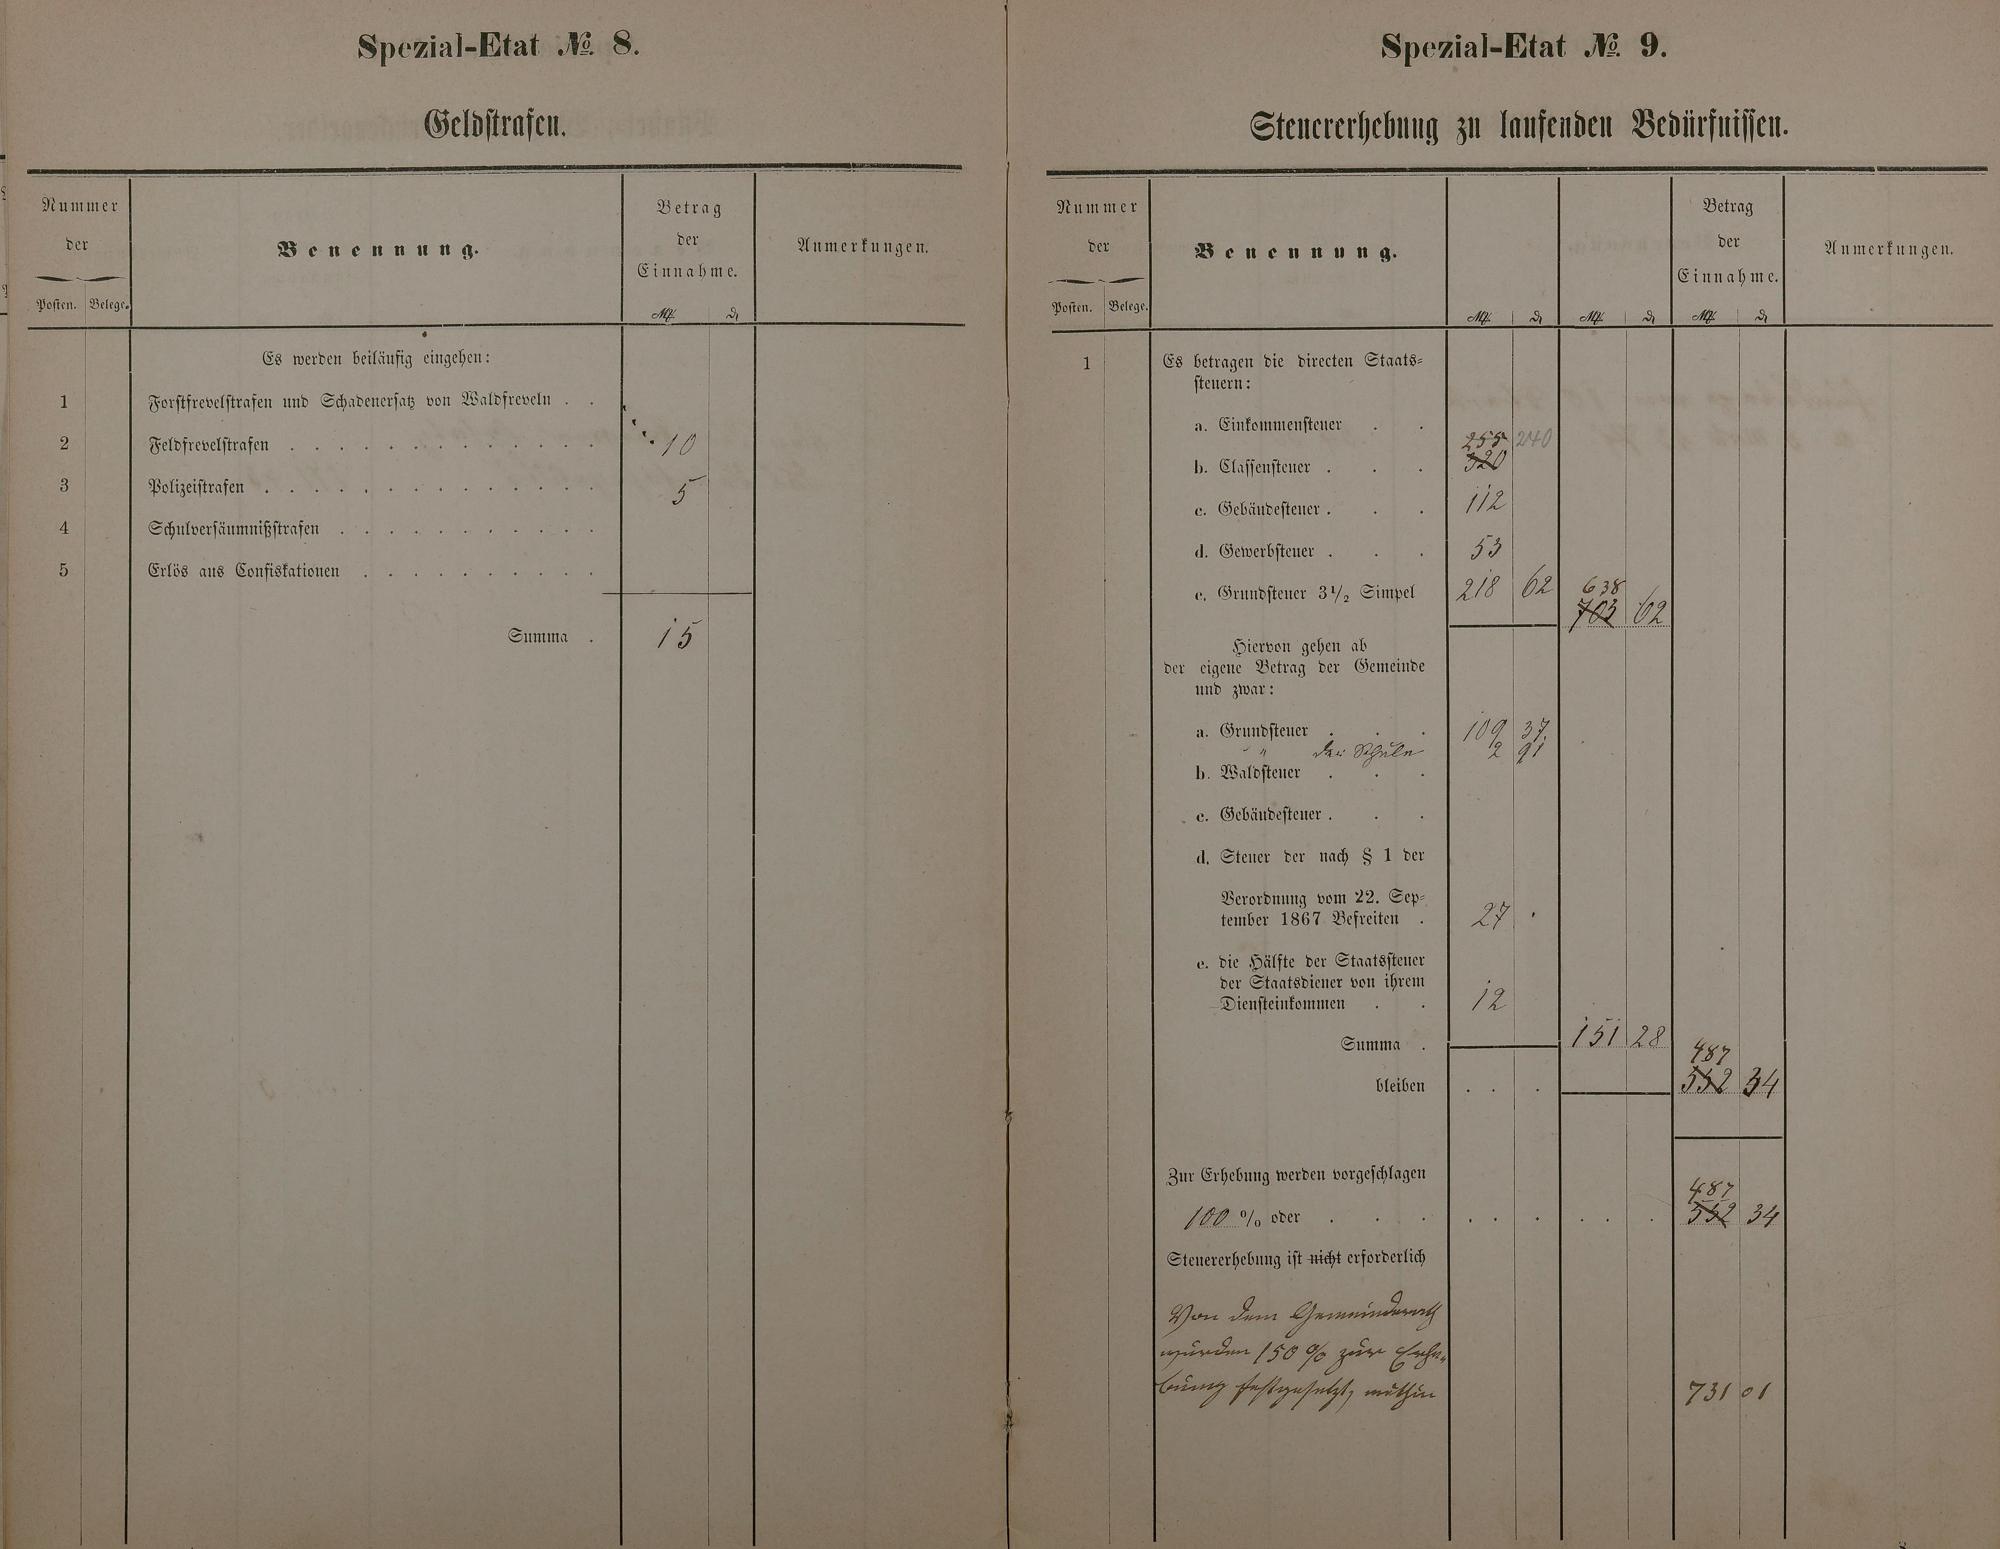 Spezial-Etat № 8.
Geldstrafen.
Nummer
der
Posten. Belege.
Benennung.
Betrag
der
Einnahme.
M. ₰
Anmerkungen.
Es werden beiläufig eingehen:
1 Forstfrevelstrafen und Schadenersatz von Waldfreveln . .
2 Feldfrevelstrafen . . . . . . . . . . . . . 10
3 Polizeistrafen . . . . . . . . . . . . . . 5
4 Schulversäumnißstrafen . . . . . . . . . . .
5 Erlös aus Confiskationen . . . . . . . . . .
Summa . 15
Spezial-Etat № 9.
Steuererhebung zu laufenden Bedürfnissen.
Nummer
der
Posten. Belege.
Benennung.
M. ₰ M. ₰
Betrag
der
Einnahme.
M. ₰
Anmerkungen.
1 Es betragen die directen Staats-
steuern:
a. Einkommensteuer . .
255 240
b. Classensteuer . . . 320
c. Gebäudesteuer . . . 112
d. Gewerbsteuer . . . 53
638
e. Grundsteuer 3½ Simpel 218 62 703 62
Hiervon gehen ab
der eigene Betrag der Gemeinde
und zwar:
a. Grundsteuer . . . 109 37
" der Schule 2 91
b. Waldsteuer . . .
c. Gebäudesteuer . . .
d. Steuer der nach § 1 der
Verordnung vom 22. Sep-
tember 1867 Befreiten . 27 .
e. die Hälfte der Staatssteuer
der Staatsdiener von ihrem
Diensteinkommen . . 12
Summa . 151 28
487
bleiben . . . 552 34
Zur Erhebung werden vorgeschlagen
487
100 % oder . . . . . . . . . 552 34
Steuererhebung ist nicht erforderlich
Von dem Gemeinderath
wurden 150 % zur Erhe-
bung festgesetzt, mithin 731 01